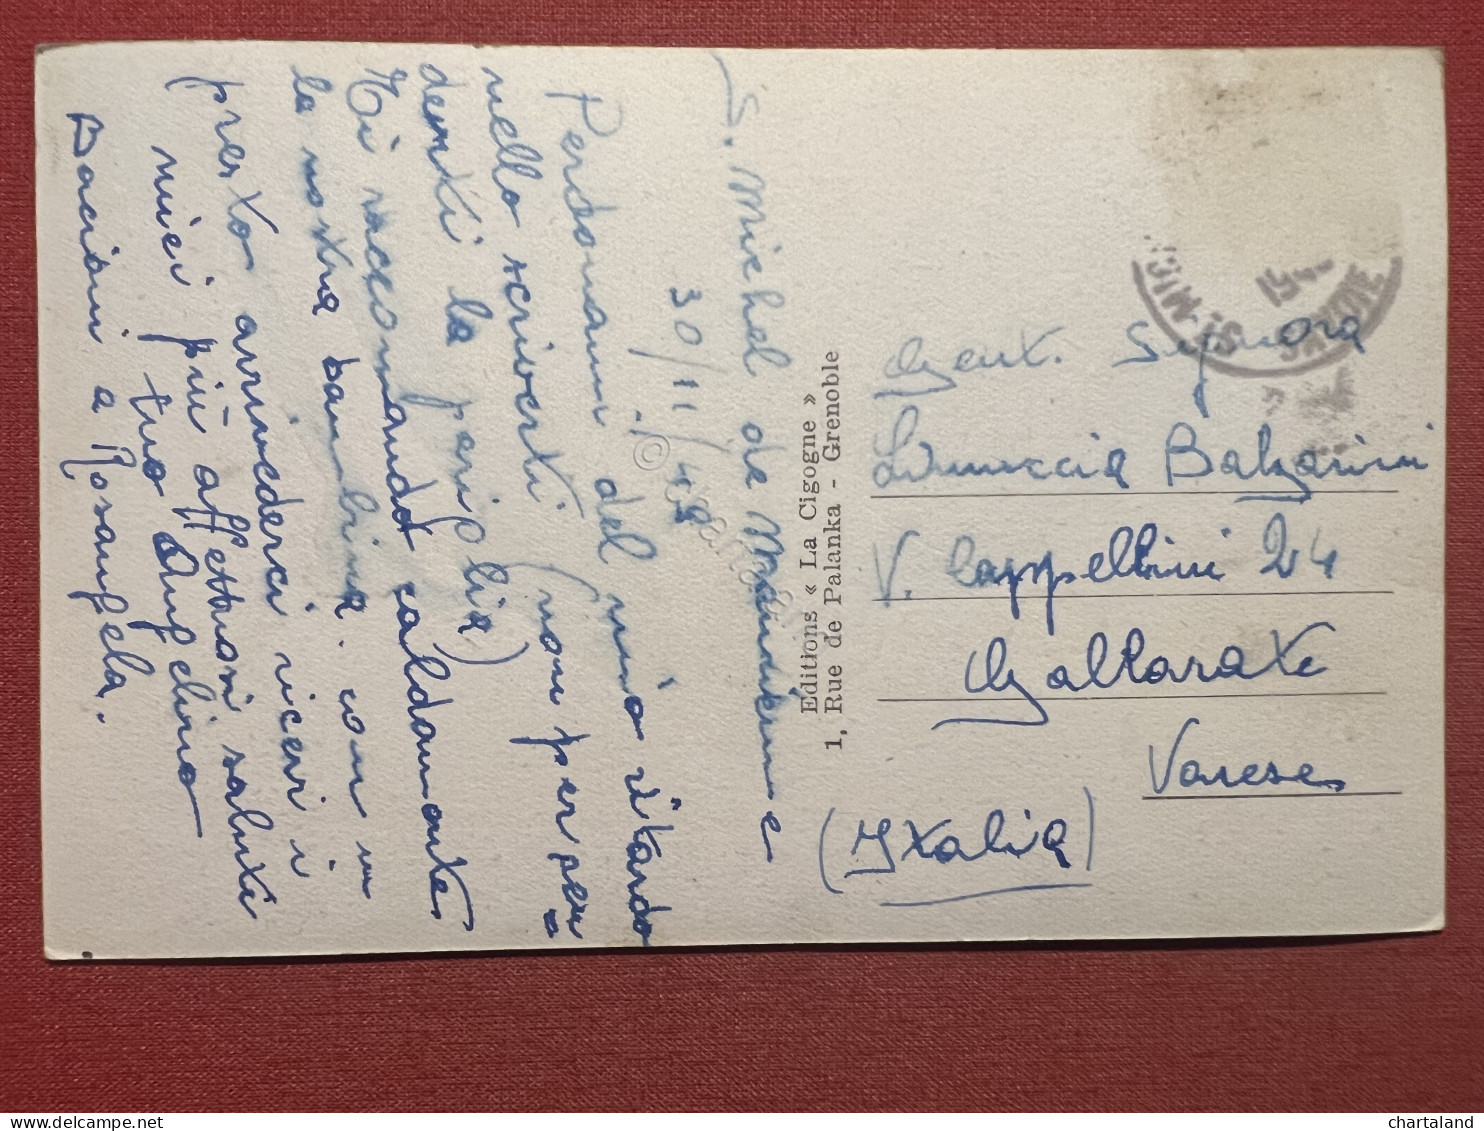 S. Michel de Maurienne
30/11/48
Perdonami del mio ritardo
nello scriverti (non per per
derti la perip lia)
Ti raccomando caldamente
la nostra bambina. con un
presto arrivederci ricevi i
miei più affettuosi saluti
tuo Angelino
Bacioni a Rosangela.
Editions « La Cigogne »
1, Rue de Palanka - Grenoble
ST-MIC
SAVOIE
Gent. Signora
Balzarini
V. Cappellini 24
Gallarate
Varese
(Italia)
chartaland